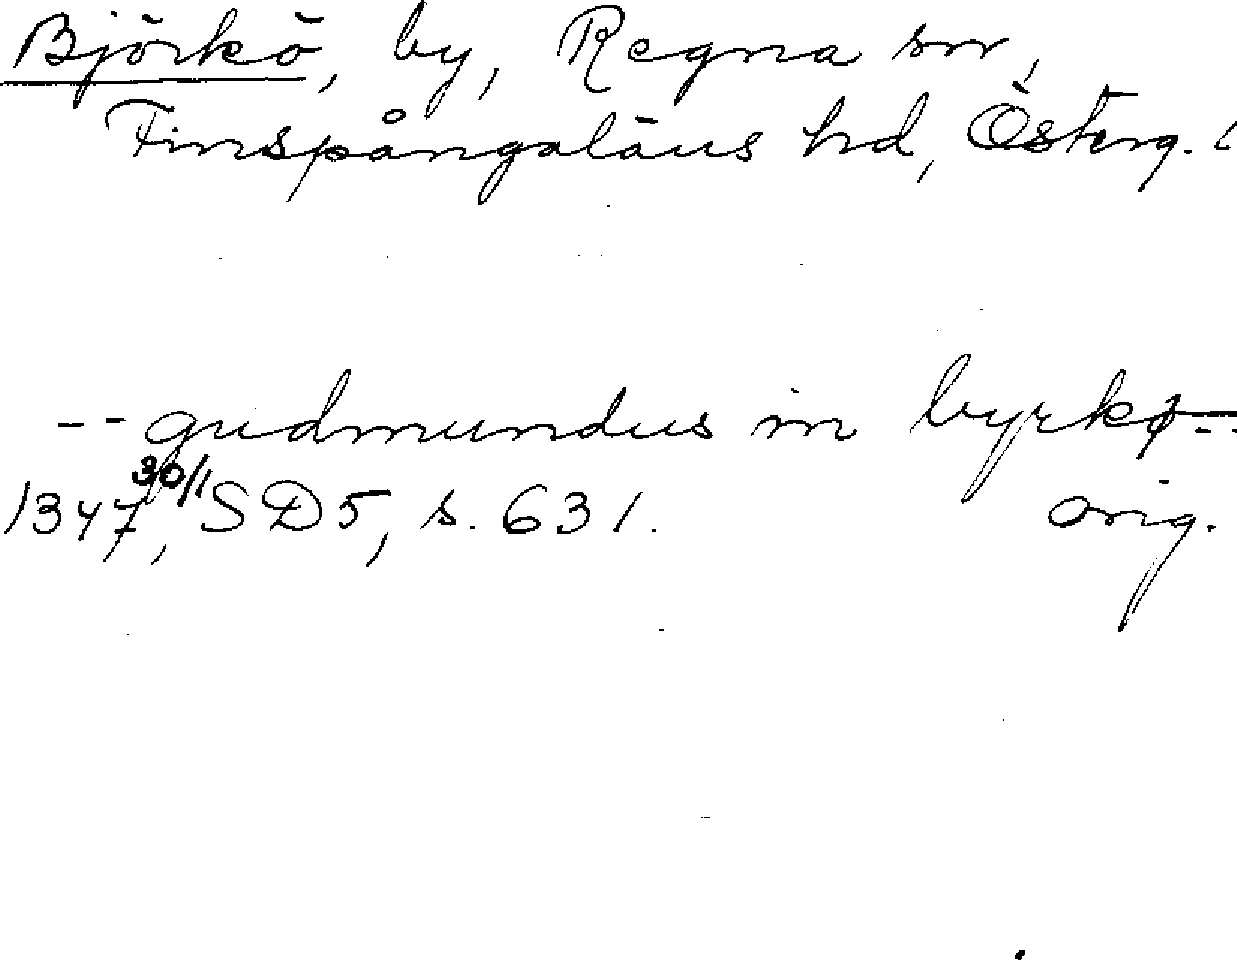 Björkö, by, Regna sn,
Finspångaläns hd, Österg. l
-- gudmundus in byrkø --
1347 30/1, SD5, s. 631. orig.